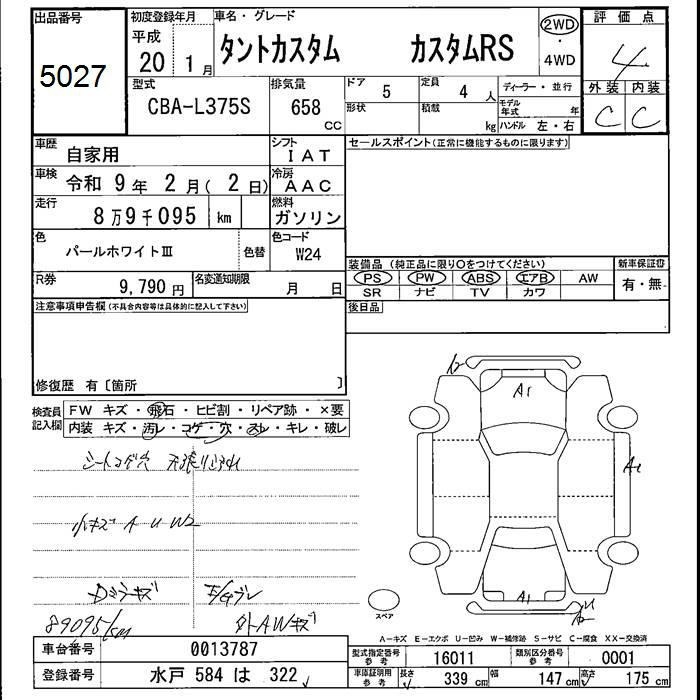 出品番号
5027
初度登録年月
平成
20 1月
車名・グレード
タントカスタム カスタムRS
2WD
・
4WD
評価点
4
外装 内装
C C
型式
CBA-L375S
排気量
658
CC
ドア 5
定員 4 人
形状
積載
kg
ディーラー・並行
モデル年式 年
ハンドル 左・右
車歴 自家用
シフト IAT
車検 令和 9年 2月(2日)
冷房 AAC
走行 8万9千095 km
燃料 ガソリン
色 パールホワイトⅢ
色替
色コード W24
R券 9,790円
名変通知期限 月 日
注意事項申告欄(不具合内容等は具体的に記入して下さい)
修復歴 有〔箇所 〕
セールスポイント(正常に機能するものに限ります)
装備品(純正品に限り○をつけてください)
PS PW ABS エアB AW
SR ナビ TV カワ
新車保証書
有・無
後日品
検査員記入欄
FW キズ・飛石・ヒビ割・リペア跡・×要
内装 キズ・汚レ・コゲ・穴・スレ・キレ・破レ
シートコゲ穴
小キズ A U W2
89095km
外AWキズ
A1
A1
スペア
A-キズ E-エクボ U-凹み W-補修跡 S-サビ C-腐食 XX-交換済
車台番号 0013787
登録番号 水戸 584 は 322
型式指定番号 参考 16011
類別区分番号 参考 0001
車庫証明用 参考
長さ 339 cm
幅 147 cm
高さ 175 cm